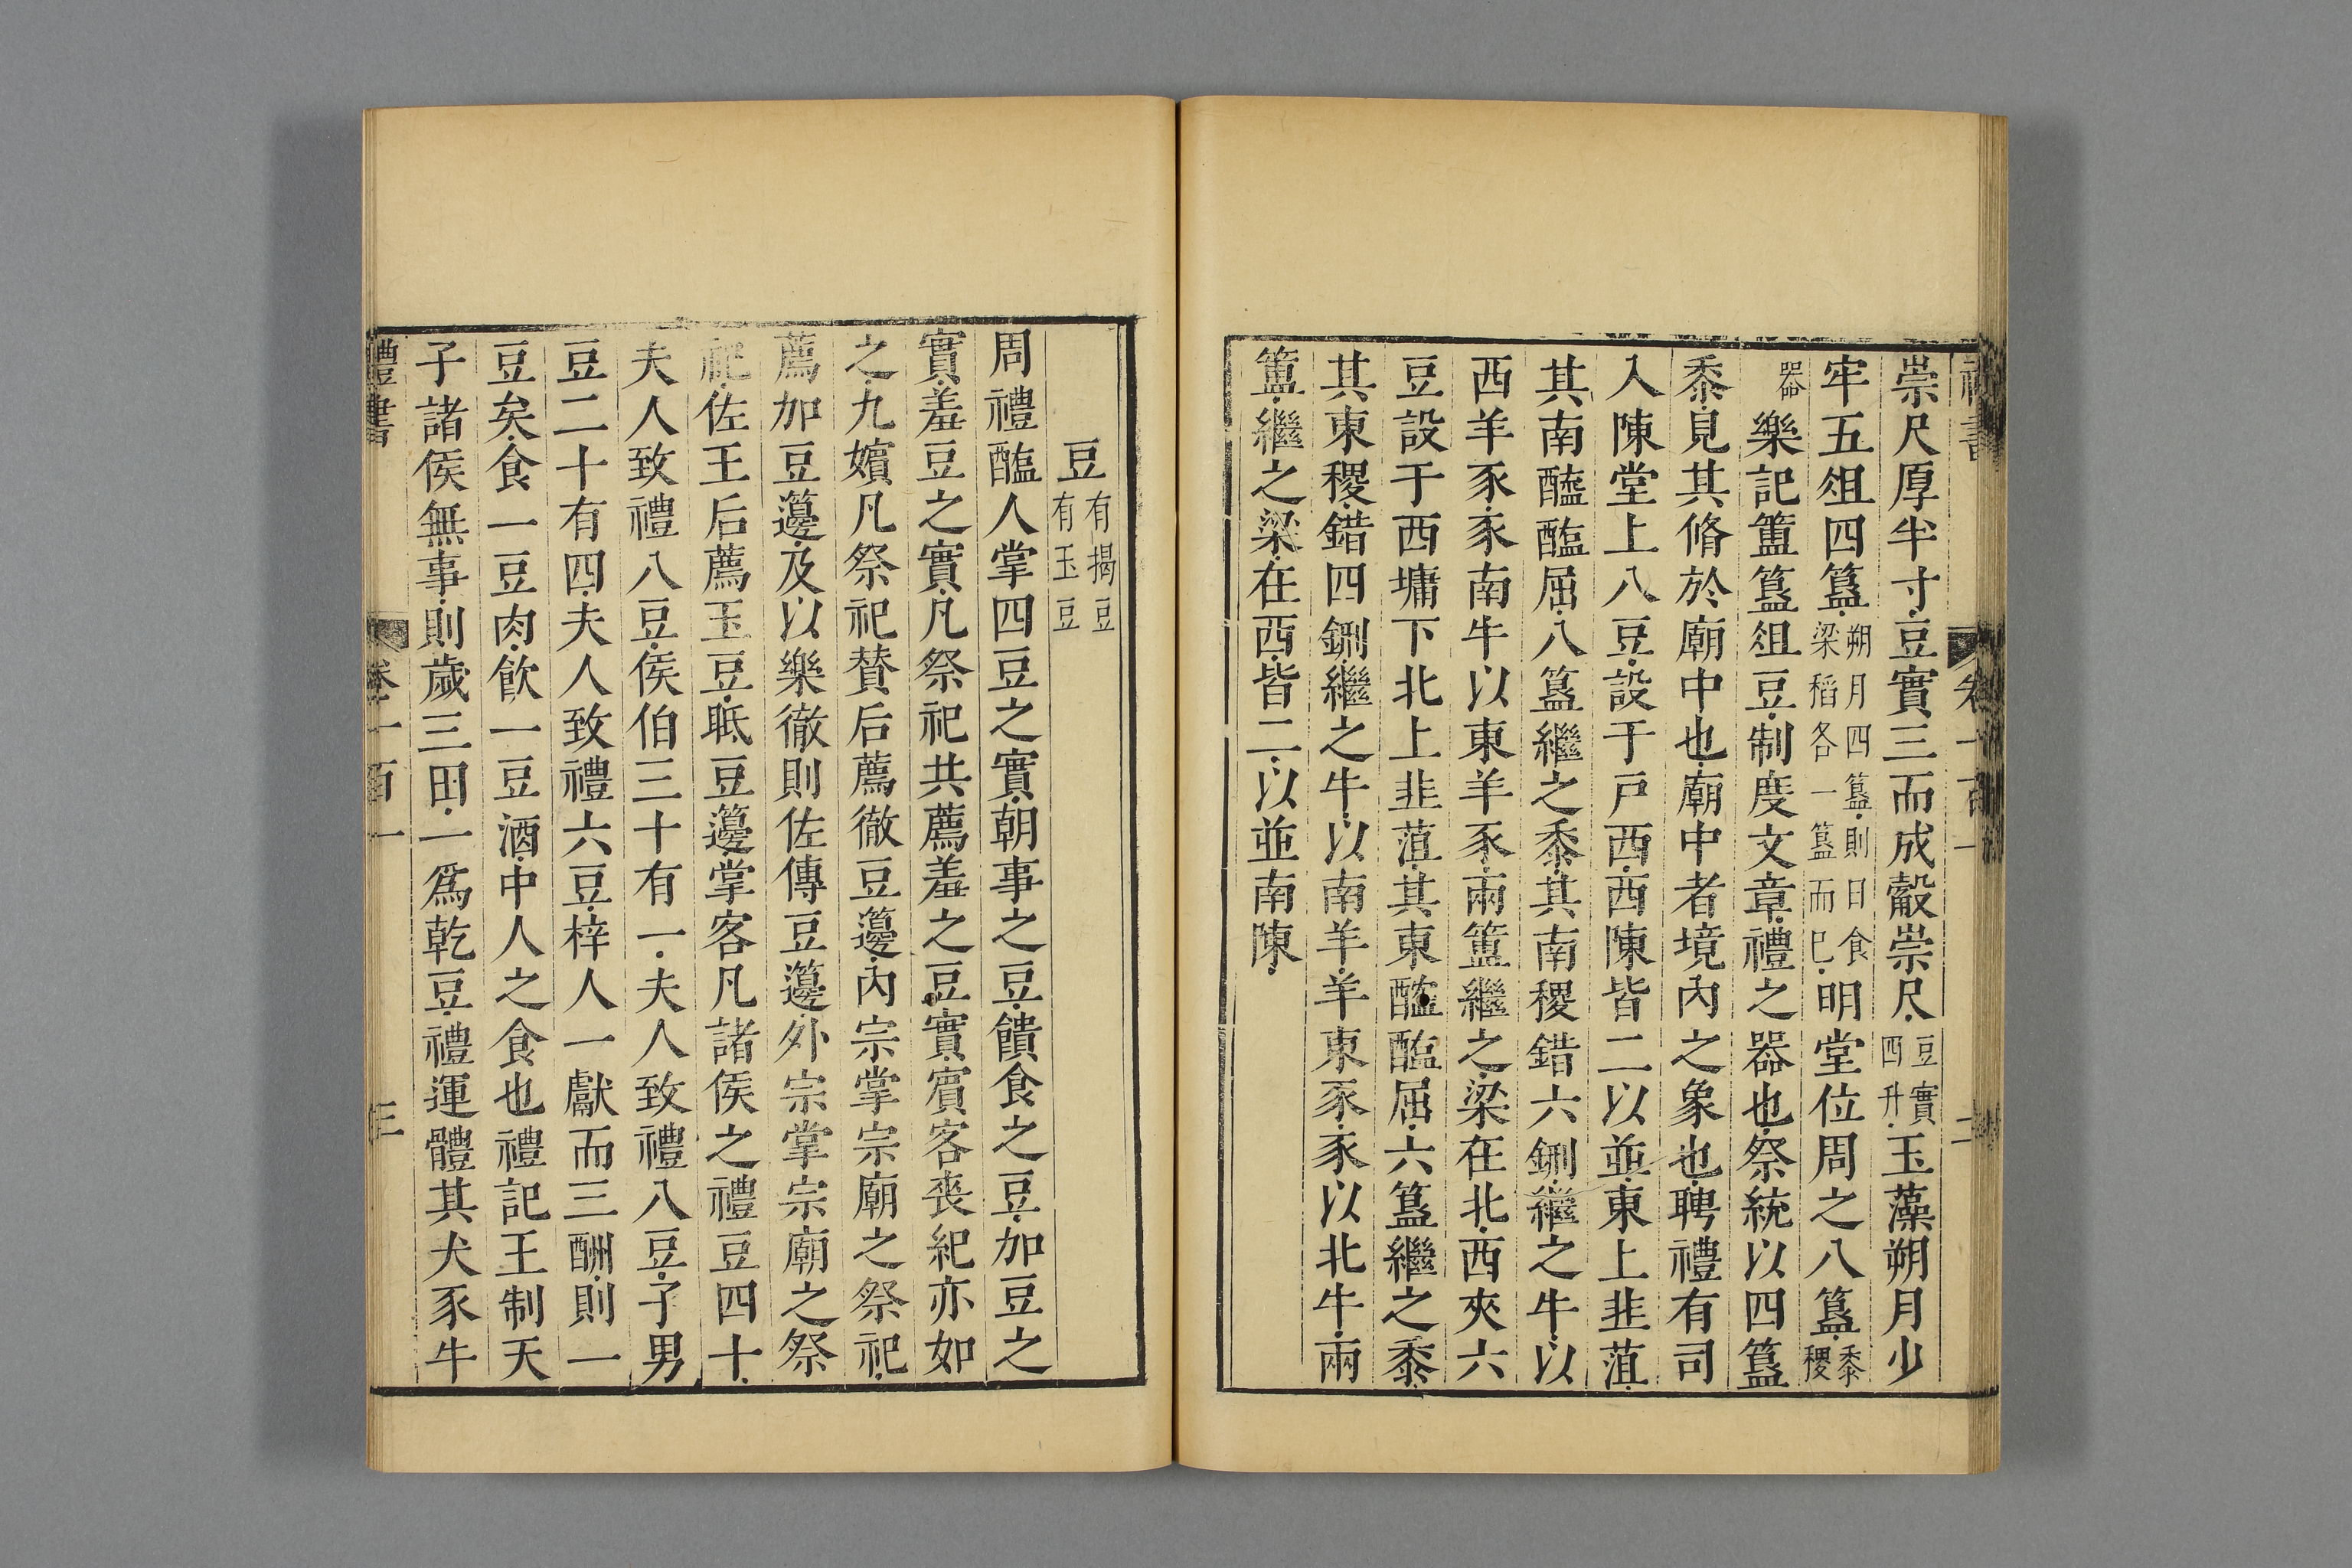 崇尺厚半寸豆實三而成觳崇尺豆實四升玉藻朔月少
牢五俎四簋朔月四簋則日食梁稻各一簋而已明堂位周之八簋黍稷
器命樂記簠簋俎豆制度文章禮之器也祭統以四簋
黍見其脩於廟中也廟中者境內之象也聘禮有司
入陳堂上八豆設于戶西西陳皆二以並東上韭菹
其南醓醢屈八簋繼之黍其南稷錯六鉶繼之牛以
西羊豕豕南牛以東羊豕兩簠繼之梁在北西夾六
豆設于西墉下北上韭菹其東醓醢屈六簋繼之黍
其東稷錯四鉶繼之牛以南羊羊東豕豕以北牛兩
簠繼之梁在西皆二以並南陳
豆有楬豆有玉豆
周禮醢人掌四豆之實朝事之豆饋食之豆加豆之
實羞豆之實凡祭祀共薦羞之豆實賓客喪紀亦如
之九嬪凡祭祀贊后薦徹豆籩內宗掌宗廟之祭祀
薦加豆籩及以樂徹則佐傳豆籩外宗掌宗廟之祭
祀佐王后薦玉豆眡豆籩掌客凡諸侯之禮豆四十
夫人致禮八豆侯伯三十有一夫人致禮八豆子男
豆二十有四夫人致禮六豆梓人一獻而三酬則一
豆矣食一豆肉飲一豆酒中人之食也禮記王制天
子諸侯無事則歲三田一爲乾豆禮運體其犬豕牛
禮書 卷一百一 三